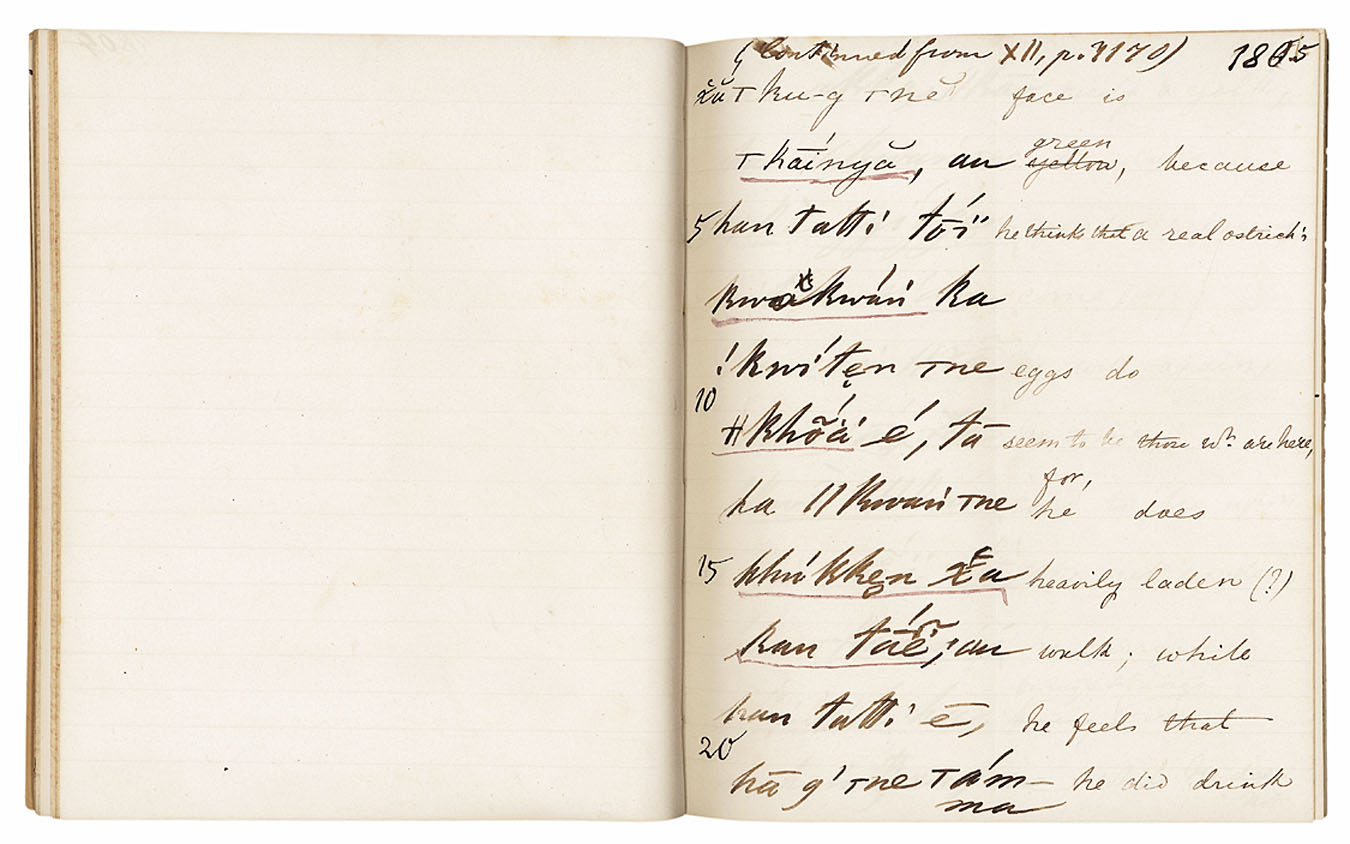 (Continued from XII, p. 1170) 1805
ku-g ⊤ne face is
green
⊤kāínyă, au yellow, because
5 han tatti tóï he thinks that a real ostrich's
kwákwáń ka
!kwíten ⊤ne eggs do
10
ǂkhõä é, tā seem to be those wh are here,
for,
ha ǁkwań ⊤ne he does
15 khúkken heavily laden (?)
kan táë; au walk; while
han tatti ē, he feels that
20
hā g' ⊤ne ⊤ám- he did drink
ma